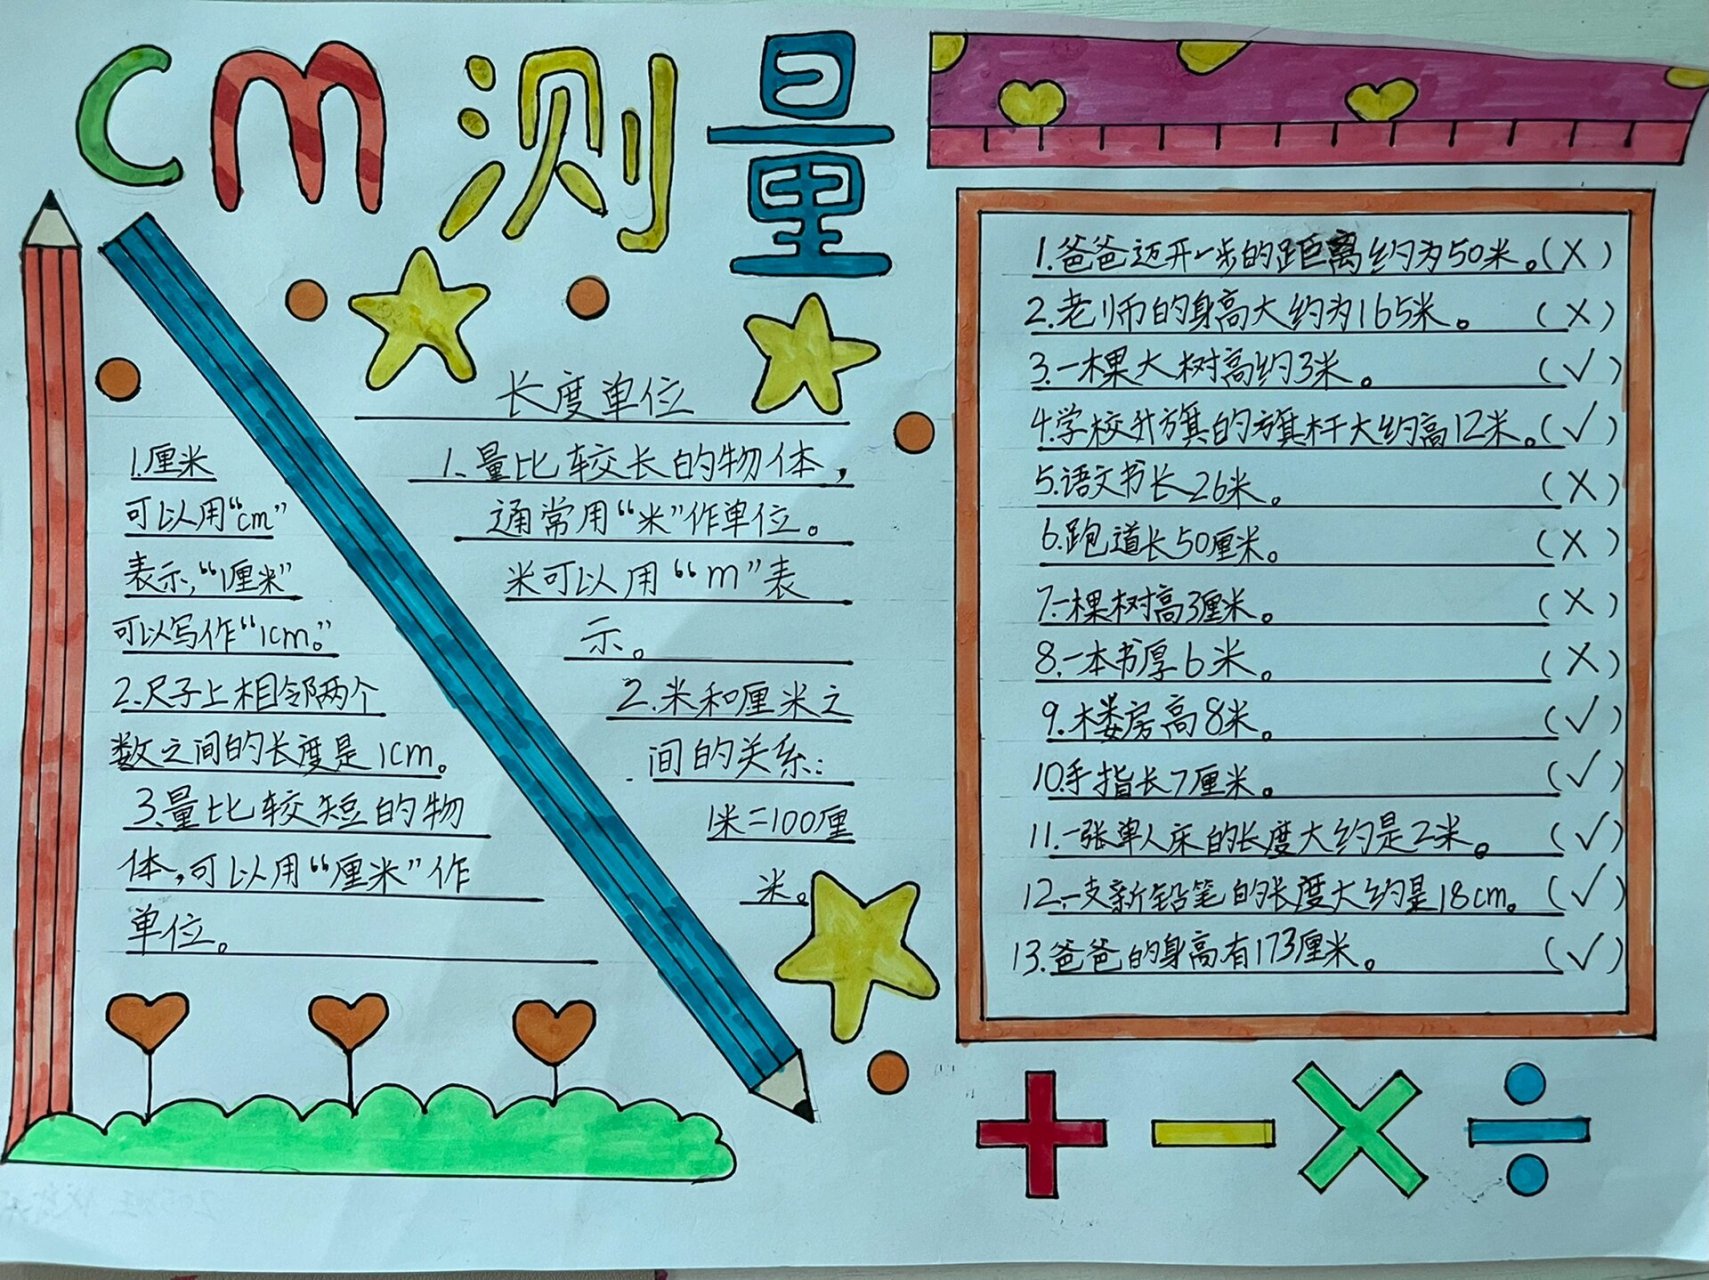 cm测量
长度单位
1.厘米
可以用“cm”
表示,“1厘米”
可以写作“1cm。”
2.尺子上相邻两个
数之间的长度是1cm。
3.量比较短的物
体,可以用“厘米”作
单位。
1.量比较长的物体,
通常用“米”作单位。
米可以用“m”表
示。
2.米和厘米之
间的关系:
1米=100厘
米。
1.爸爸迈开一步的距离约为50米。(×)
2.老师的身高大约为165米。(×)
3.一棵大树高约3米。(√)
4.学校升旗的旗杆大约高12米。(√)
5.语文书长26米。(×)
6.跑道长50厘米。(×)
7.一棵树高3厘米。(×)
8.一本书厚6米。(×)
9.楼房高8米。(√)
10.手指长7厘米。(√)
11.一张单人床的长度大约是2米。(√)
12.一支新铅笔的长度大约是18cm。(√)
13.爸爸的身高有173厘米。(√)
+ − × ÷